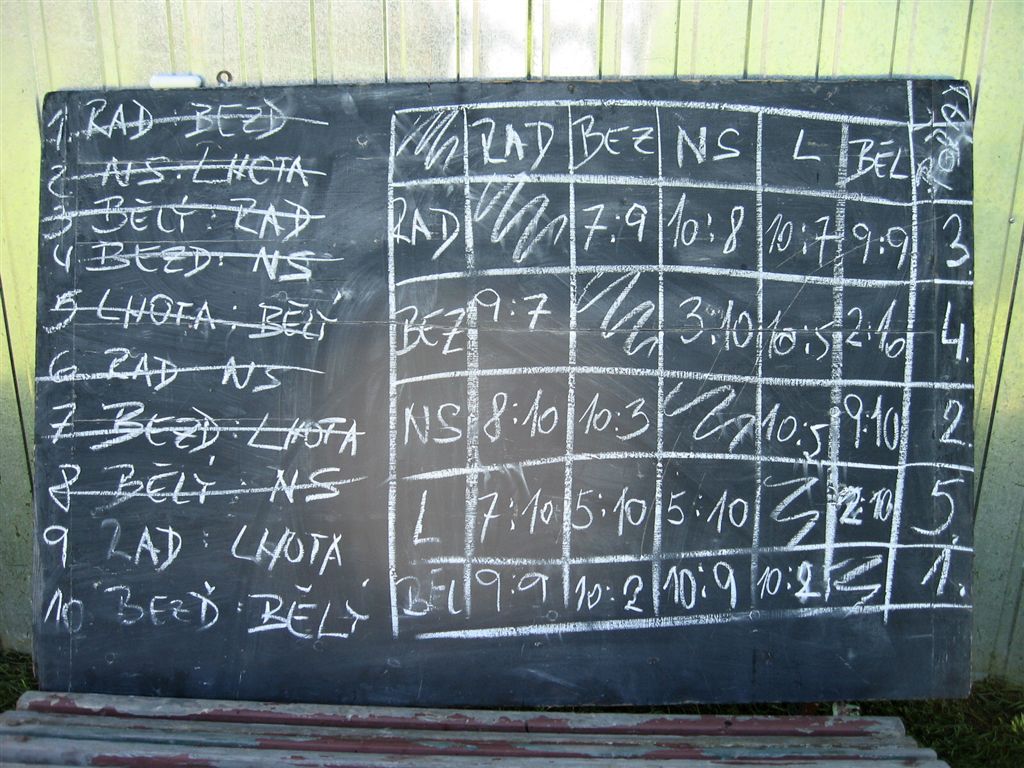 1 RAD BEZD
2 NS : LHOTA
3 BĚLÝ : RAD
4 BEZD : NS
5 LHOTA : BĚLÝ
6 RAD NS
7 BEZĎ : LHOTA
8 BĚLÝ : NS
9 RAD : LHOTA
10 BEZĎ : BĚLÝ
RAD BEZ NS L BĚL
RAD 7:9 10:8 10:7 9:9 3.
BEZ 9:7 3:10 10:5 2:10 4.
NS 8:10 10:3 10:5 9:10 2.
L 7:10 5:10 5:10 2:10 5.
BĚL 9:9 10:2 10:9 10:2 1.